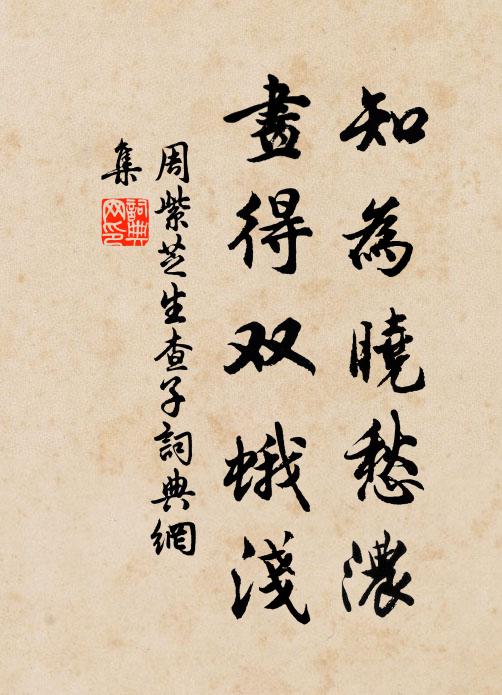 知為曉愁濃
畫得双蛾淺
周紫芝生查子詞典網
集
詞典網印